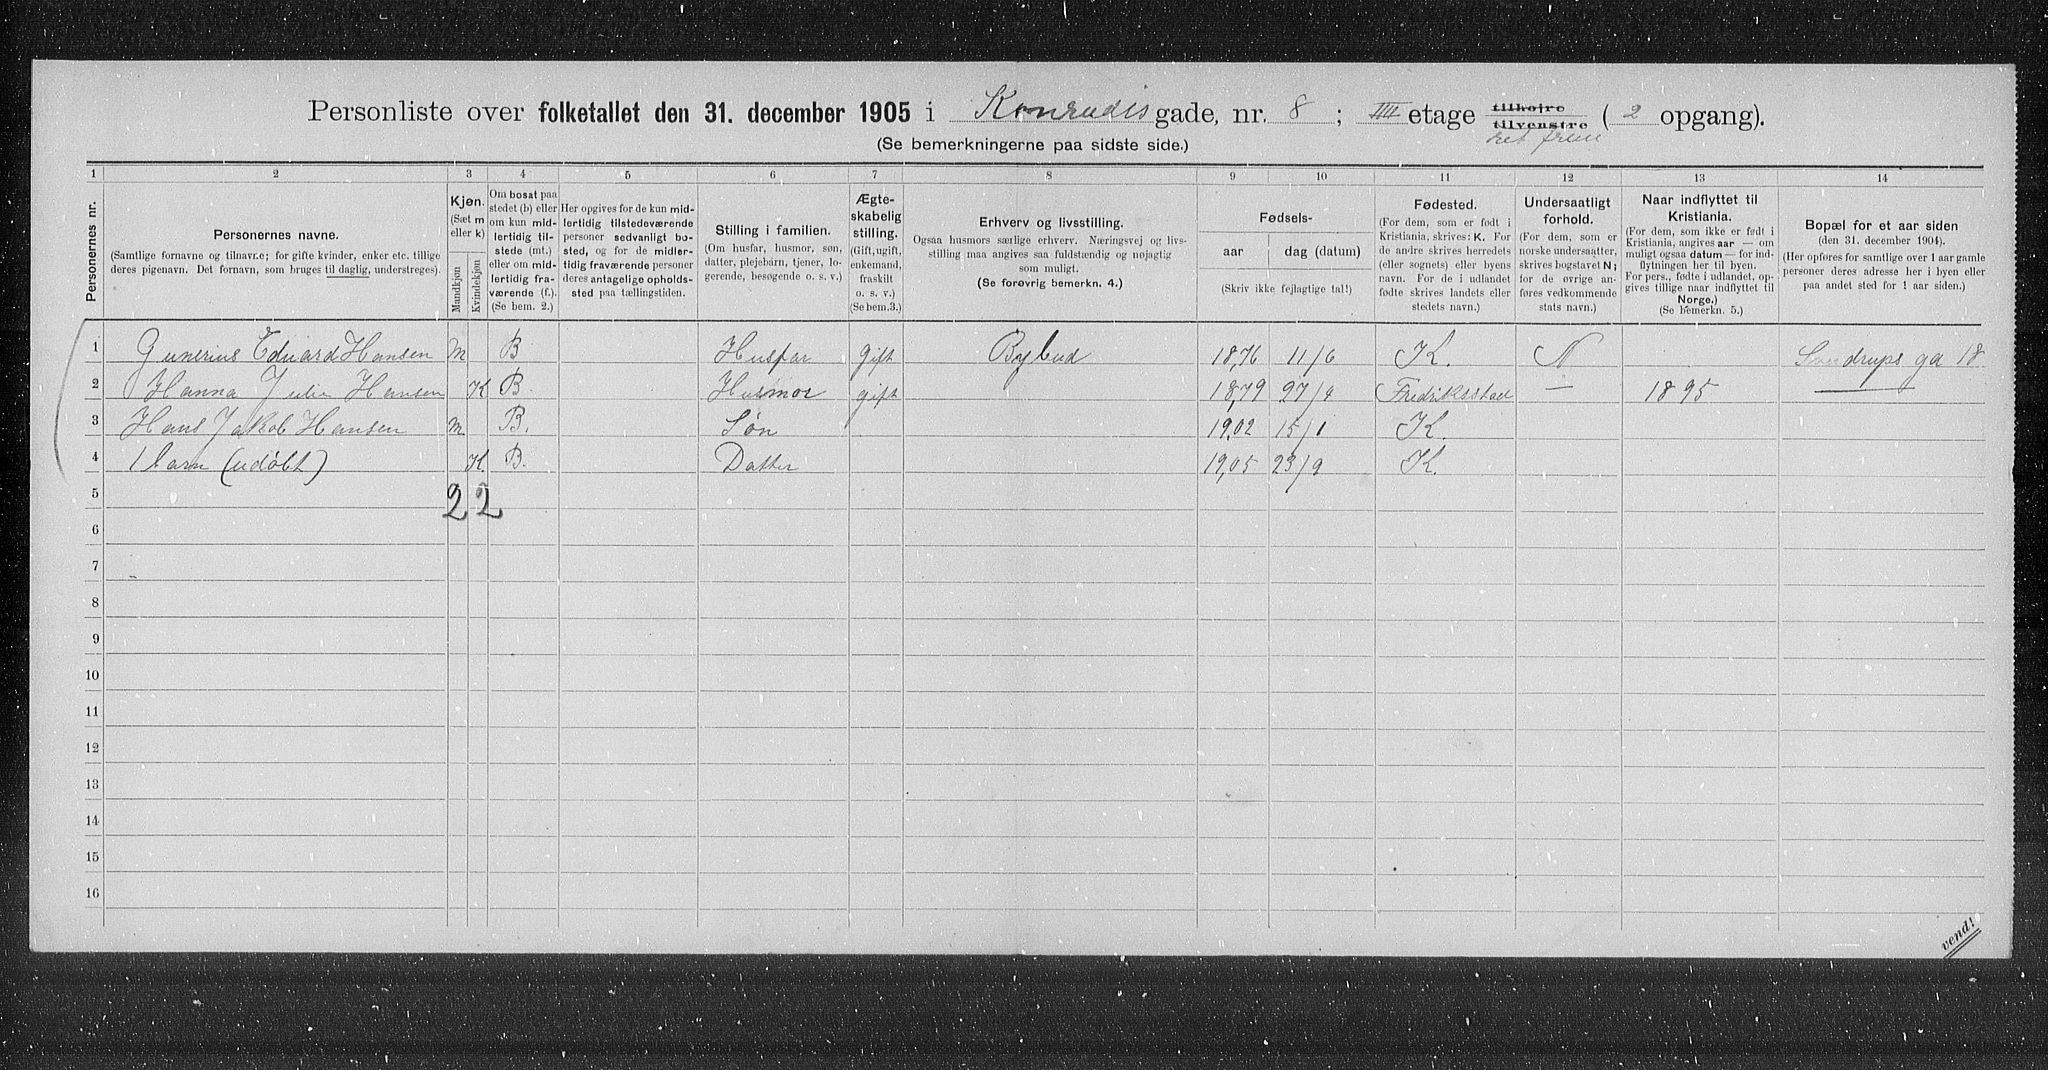 Personliste over folketallet den 31. december 1905 i Konradis gade, nr. 8 ; IIII etage tilhøjre tilvenstre ret frem ( 2 opgang).
(Se bemerkningerne paa sidste side.)
1 2 3 4 5 6 7 8 9 10 11 12 13 14
Personernes nr.
Personernes navne.
(Samtlige fornavne og tilnavne; for gifte kvinder, enker etc. tillige
deres pigenavn. Det fornavn, som bruges til daglig, understreges).
Kjøn.
(Sæt m
eller k)
Mandkjøn
Kvindekjøn
Om bosat paa
stedet (b) eller
om kun mid-
lertidig til-
stede (mt.)
eller om mid-
lertidig fra-
værende (f.).
(Se bem. 2.)
Her opgives for de kun mid-
lertidig tilstedeværende
personer sedvanligt bo-
sted, og for de midler-
tidig fraværende personer
deres antagelige opholds-
sted paa tællingstiden.
Stilling i familien.
(Om husfar, husmor, søn,
datter, plejebarn, tjener, lo-
gerende, besøgende o. s. v.)
Ægte-
skabelig
stilling.
(Gift, ugift,
enkemand,
fraskilt
o. s. v.)
(Se bem. 3.)
Erhverv og livsstilling.
Ogsaa husmors særlige erhverv. Næringsvej og livs-
stilling maa angives saa fuldstændig og nøjagtig
som muligt.
(Se forøvrig bemerkn. 4.)
Fødsels-
aar dag (datum)
(Skriv ikke fejlagtige tal!)
Fødested.
(For dem, som er født i
Kristiania, skrives: K. For
de andre skrives herredets
(eller sognets) eller byens
navn. For de i udlandet
fødte skrives landets eller
stedets navn.)
Undersaatligt
forhold.
(For dem, som er
norske undersaatter,
skrives bogstavet N;
for de øvrige an-
føres vedkommende
stats navn.)
Naar indflyttet til
Kristiania.
(For dem, som ikke er født i
Kristiania, angives aar — om
muligt ogsaa datum — for ind-
flytningen her til byen.
For pers., fødte i udlandet, op-
gives tillige naar indflyttet til
Norge.)
(Se bemerkn. 5.)
Bopæl for et aar siden
(den 31. december 1904).
(Her opføres for samtlige over 1 aar gamle
personer deres adresse her i byen eller
paa andet sted for 1 aar siden.)
1 Gunerius Eduard Hansen m B Husfar gift Bybud 1876 11/6 K. N Sverdrups ga 18
2 Hanna Julie Hansen K B. Husmor gift 1879 27/4 Fredriksstad — 1895 —
3 Hans Jakob Hansen m B. Søn 1902 15/1 K.
4 1 barn (udøbt) K B. Datter 1905 23/9 K.
5 2 2
6
7
8
9
10
11
12
13
14
15
16
vend!